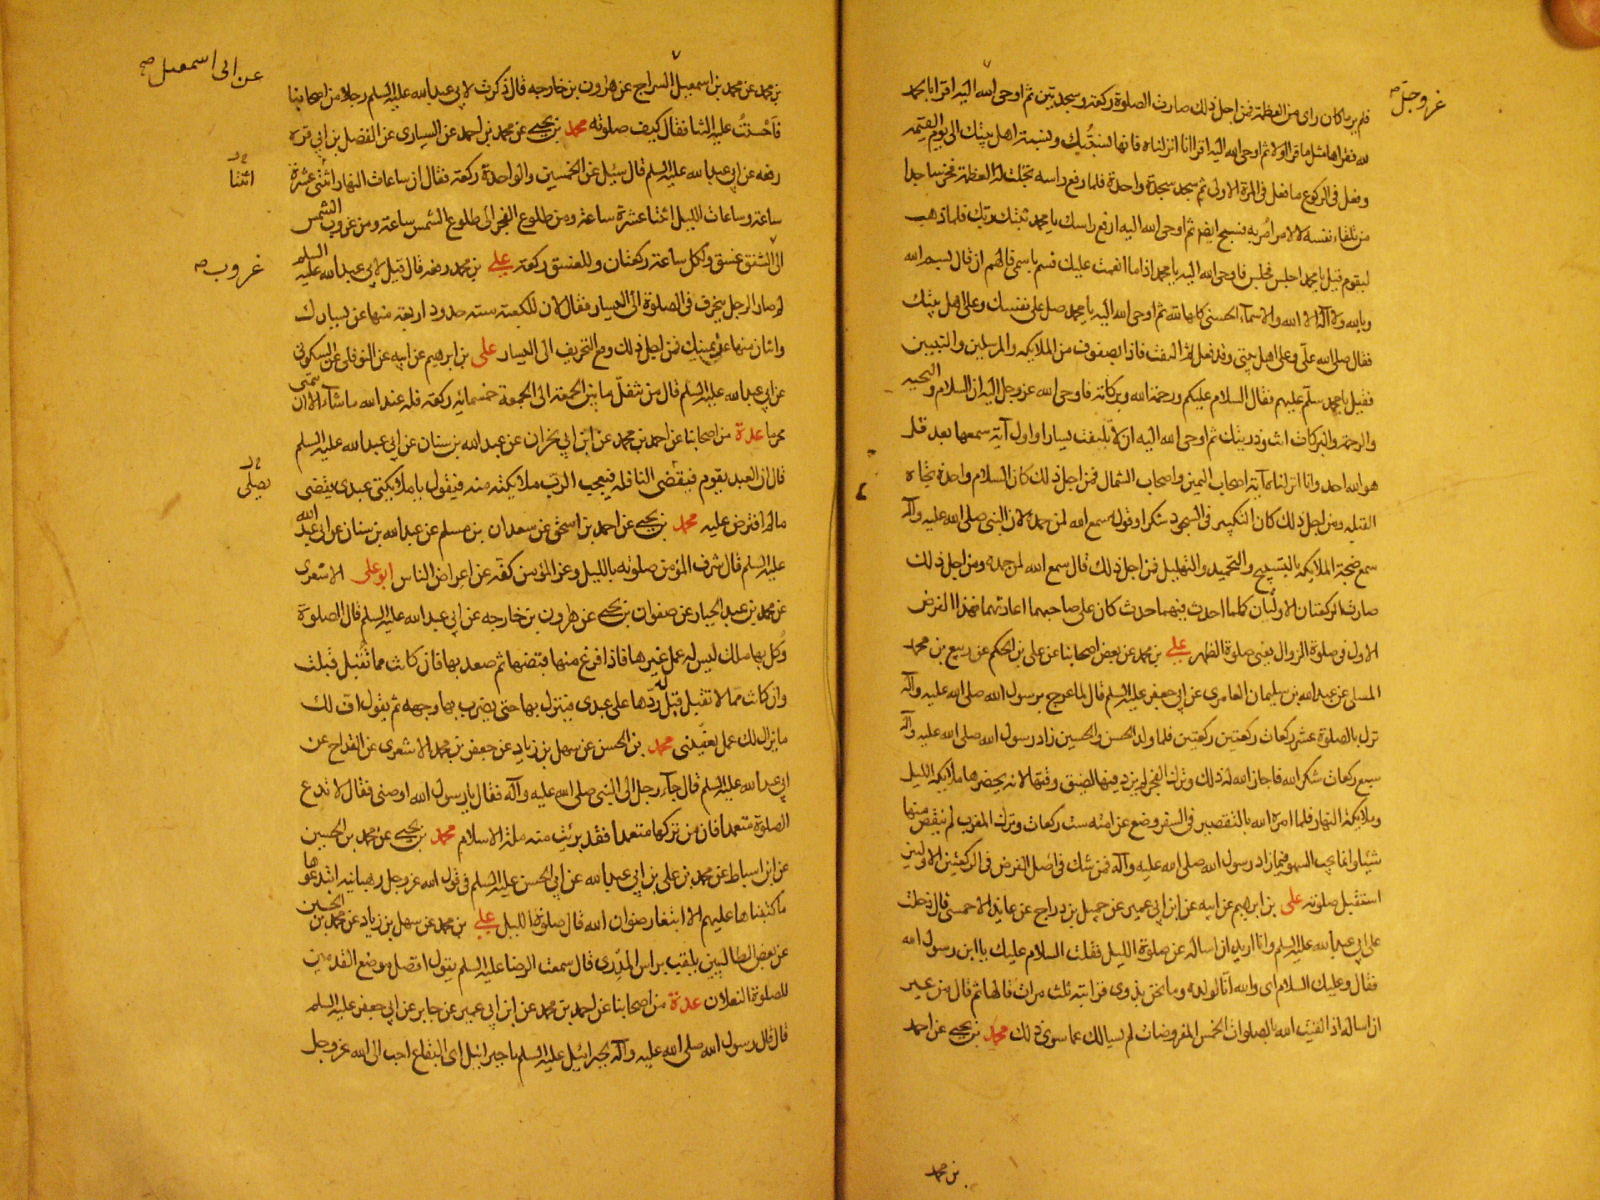 فلم ير ما كان راى من العظمة فمن اجل ذلك صارت الصلوة ركعة وسجدتين ثم اوحى الله اليه اقرا يا محمد
عز وجل صح
لله فقراها مثل ما قرا اولا ثم اوحى الله اليه اقرا انا انزلناه فانها نسبتك ونسبة اهل بيتك الى يوم القيمة
وفعل فى الركوع ما فعل فى المرة الاولى ثم سجد سجدة واحدة فلما رفع راسه تجلت له العظمة فخر ساجدا
من تلقاء نفسه لا لامر امر به فسبح ايضا ثم اوحى الله اليه ارفع راسك يا محمد ثبتك ربك فلما ذهب
ليقوم قيل يا محمد اجلس فجلس فاوحى الله اليه يا محمد اذا ما انعمت عليك فسم باسمى فالهم ان قال بسم الله
وبالله ولا اله الا الله والاسماء الحسنى كلها لله ثم اوحى الله اليه يا محمد صل على نفسك وعلى اهل بيتك
فقال صلى الله على وعلى اهل بيتى وقد فعل ثم التفت فاذا بصفوف من الملايكة والمرسلين والنبيين
فقيل يا محمد سلم عليهم فقال السلام عليكم ورحمة الله وبركاته فاوحى الله عز وجل اليه ان السلام والتحية
والرحمة والبركات انت وذريتك ثم اوحى الله اليه ان لا يلتفت يسارا واول آية سمعها بعد قل
هو الله احد وانا انزلناه آية اصحاب اليمين واصحاب الشمال فمن اجل ذلك كان السلام واحدة تجاه
القبلة ومن اجل ذلك كان التكبير فى السجود شكرا وقوله سمع الله لمن حمده لان النبى صلى الله عليه وآله
سمع ضجة الملايكة بالتسبيح والتحميد والتهليل فمن اجل ذلك قال سمع الله لمن حمده ومن اجل ذلك
صارت الركعتان الاوليان كلما احدث فيهما حدث كان على صاحبهما اعادتهما فهذا الفرض
الاول فى صلوة الزوال يعنى صلوة الظهر على بن محمد عن بعض اصحابنا عن على بن الحكم عن ربيع بن محمد
المسلى عن عبد الله بن سليمان العامرى عن ابى جعفر عليه السلم قال لما عرج برسول الله صلى الله عليه وآله
نزل بالصلوة عشر ركعات ركعتين ركعتين فلما ولد الحسن والحسين زاد رسول الله صلى الله عليه وآله
سبع ركعات شكرا لله فاجاز الله له ذلك وترك الفجر لم يزد فيها لضيق وقتها لانه يحضرها ملايكة الليل
وملايكة النهار فلما امره الله بالتقصير فى السفر وضع عن امته ست ركعات وترك المغرب لم ينقص منها
شيئا وانما يجب السهو فيما زاد رسول الله صلى الله عليه وآله فمن شك فى اصل الفرض فى الركعتين الاولتين
استقبل صلوته على بن ابرهيم عن ابيه عن ابن ابى عمير عن جميل بن دراج عن عايذ الاحمسى قال دخلت
على ابى عبد الله عليه السلم وانا اريد ان اساله عن صلوة الليل فقلت السلام عليك يا ابن رسول الله
فقال وعليك السلام اى والله انا لولده وما نحن بذوى قرابته ثلث مرات قالها ثم قال من غير
ان اساله اذا لقيت الله بالصلوات الخمس المفروضات لم يسالك عما سوى ذلك محمد بن يحيى عن احمد
بن محمد
بن محمد عن محمد بن اسمعيل السراج عن هرون بن خارجة قال ذكرت لابى عبد الله عليه السلم رجلا من اصحابنا
عن ابى اسمعيل صح
فاحسنت عليه الثنا فقال كيف صلوته محمد بن يحيى عن محمد بن احمد عن السيارى عن الفضل بن ابى قرة
رفعه عن ابى عبد الله عليه السلم قال سئل عن الخمسين والواحدة ركعة فقال ان ساعات النهار اثنتى عشرة
اثنتا
ساعة وساعات الليل اثنتا عشرة ساعة ومن طلوع الفجر الى طلوع الشمس ساعة ومن غروب الشمس
الى الشفق غسق ولكل ساعة ركعتان وللغسق ركعة على بن محمد رفعه قال قيل لابى عبد الله عليه السلم
غروب صح
لم صار الرجل ينحرف فى الصلوة الى اليسار فقال لان للكعبة ستة حدود اربعة منها عن يسارك
واثنان منها على يمينك فمن اجل ذلك وقع التحريف الى اليسار على بن ابرهيم عن ابيه عن النوفلى عن السكونى
عن ابى عبد الله عليه السلم قال من تنفل ما بين الجمعة الى الجمعة خمسمائة ركعة فله عند الله ما شاء الا ان يتمنى
محرما عدة من اصحابنا عن احمد بن محمد عن ابن ابى نجران عن عبد الله بن سنان عن ابى عبد الله عليه السلم
قال ان العبد يقوم فيقضى النافلة فيعجب الرب ملايكته منه فيقول يا ملايكتى عبدى يقضى
يصلى
ما لم افترض عليه محمد بن يحيى عن احمد بن اسحق عن سعدان بن مسلم عن عبد الله بن سنان عن ابى عبد الله
عليه السلم قال شرف المؤمن صلوته بالليل وعز المؤمن كفه عن اعراض الناس ابو على الاشعرى
عن محمد بن عبد الجبار عن صفوان بن يحيى عن هرون بن خارجة عن ابى عبد الله عليه السلم قال الصلوة
وكل بها ملك ليس له عمل غيرها فاذا فرغ منها قبضها ثم صعد بها فان كانت مما تقبل قبلت
وان كانت مما لا تقبل قيل له ردها على عبدى فينزل بها حتى يضرب بها وجهه ثم يقول اف لك
ما يزال لك عمل يعنينى محمد بن الحسن عن سهل بن زياد عن جعفر بن محمد الاشعرى عن القداح عن
ابى عبد الله عليه السلم قال جآء رجل الى النبى صلى الله عليه وآله فقال يا رسول الله اوصنى فقال لا تدع
الصلوة متعمدا فان من تركها متعمدا فقد برئت منه ملة الاسلام محمد بن يحيى عن محمد بن الحسين
عن ابن اسباط عن محمد بن على بن ابى عبد الله عن ابى الحسن عليه السلم فى قول الله عز وجل رهبانية ابتدعوها
ما كتبناها عليهم الا ابتغاء رضوان الله قال صلوة الليل على بن محمد عن سهل بن زياد عن محمد بن الحسين
عن بعض الطالبيين يلقب براس المدرى قال سمعت الرضا عليه السلم يقول افضل موضع القدمين
للصلوة النعلان عدة من اصحابنا عن احمد بن محمد عن ابن ابى عمير عن جابر عن ابى جعفر عليه السلم
قال قال رسول الله صلى الله عليه وآله لجبرائيل عليه السلم يا جبرائيل اى البقاع احب الى الله عز وجل